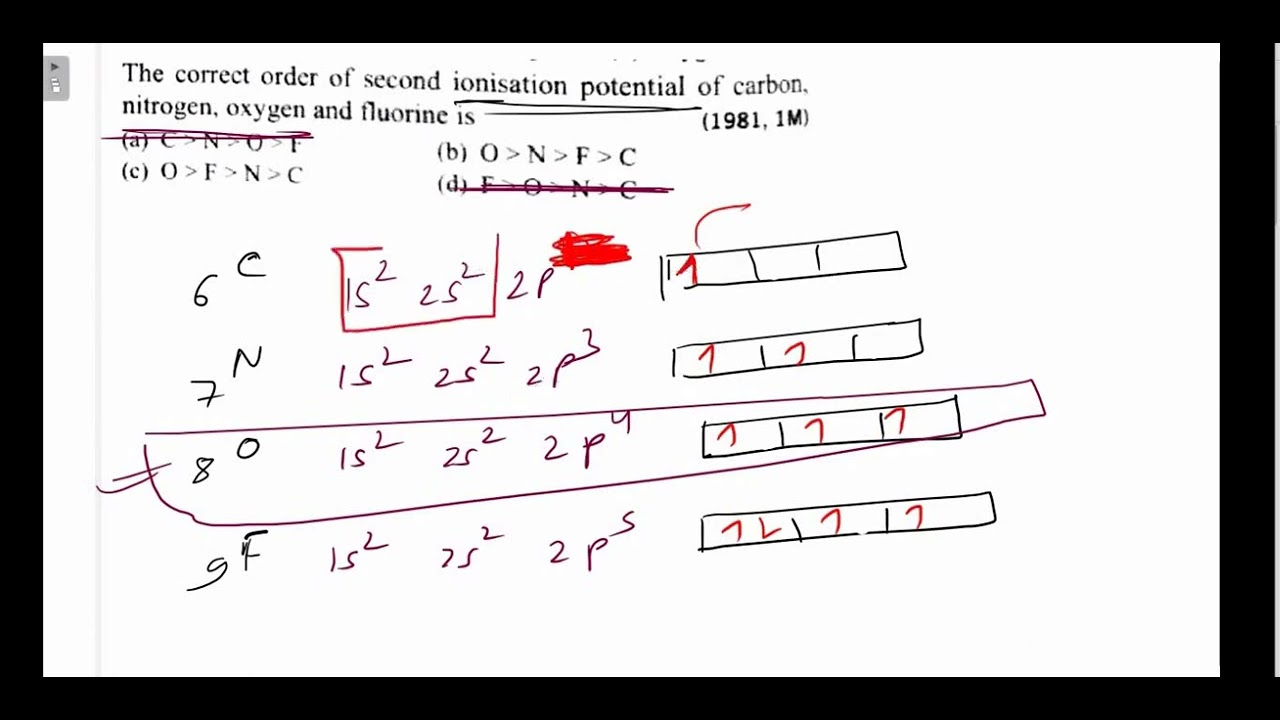 The correct order of second ionisation potential of carbon,
nitrogen, oxygen and fluorine is
(1981, 1M)
(a) C > N > O > F
(b) O > N > F > C
(c) O > F > N > C
(d) F > O > N > C
6 C 1s² 2s² 2p 1
7 N 1s² 2s² 2p³ 1 1
8 O 1s² 2s² 2p⁴ 1 1 1
9 F 1s² 2s² 2p⁵ 1 L 1 1